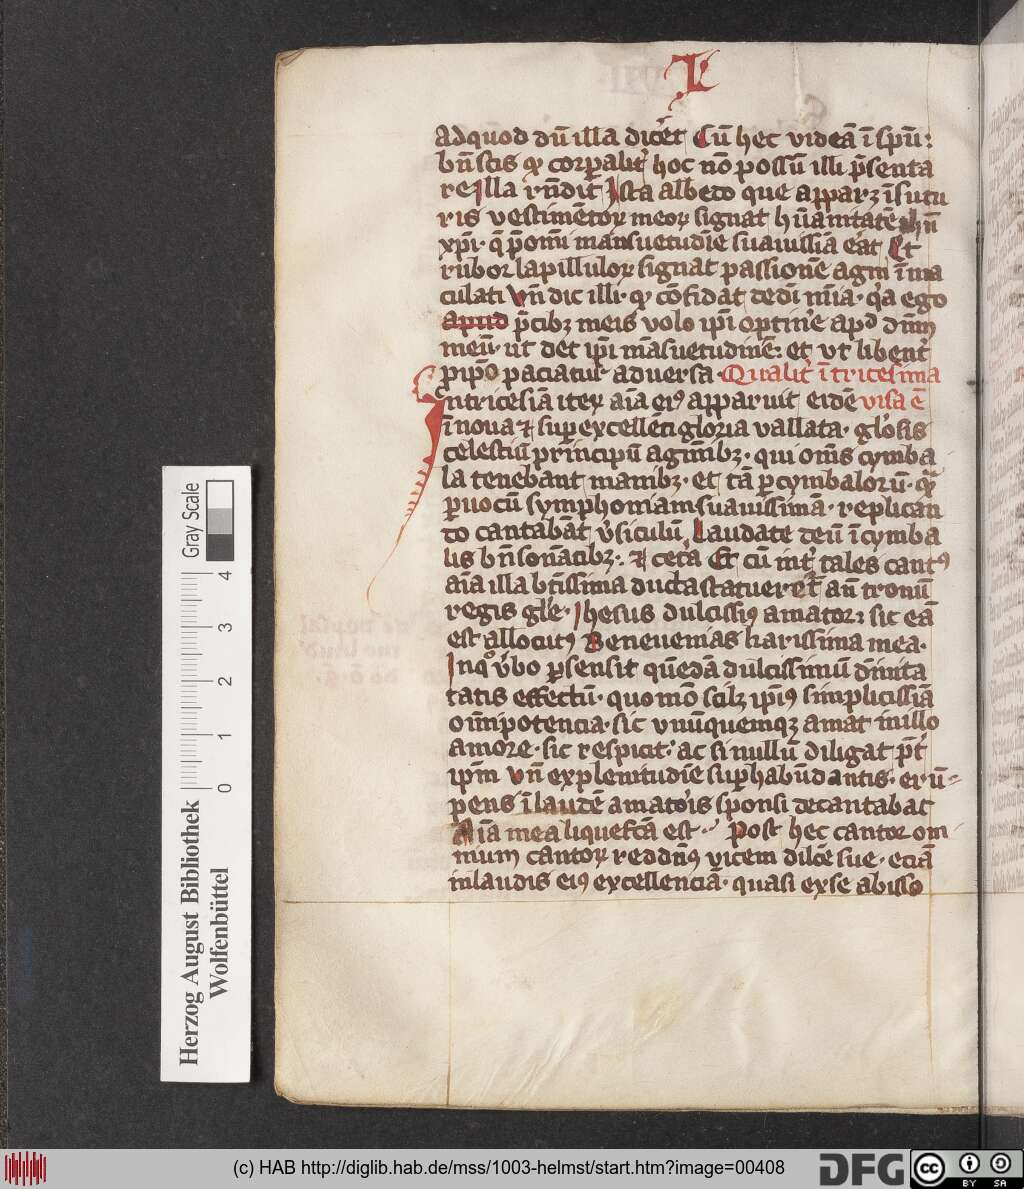 I
adquod dū illa dic̄et Cū hec videā ī spū:
bn̄ scis qꝫ corꝑalit᷑ hoc nō possū illi p̄senta
re Illa rn̄dit Ista albedo que apparꝫ ī sutu
ris vestimētoꝝ meoꝝ signat hūanitatē ihū
xp̄i· q̄ p̄ om̄i mansuetudīe suauissiā erat Et
rubor lapilluloꝝ signat passionē agni īma
culati Vn̄ dic illi· qꝫ cōfidat de dei mīa· qꝛ ego
apud p̄cibꝫ meis volo ip̄i optin̄e apd dn̄m
meū· ut det ip̄i māsuetudinē: et vt libent᷑
ꝓ ip̄o paciatur aduersa· Qualit᷑ ī tricesima
In tricesiā iteꝝ aīa eiꝰ apparuit eidē visa ē
ī noua ⁊ suꝑexcellēti gloria vallata· gl'osis
celestiū principū agminibꝫ· qui om̄s cymba
la tenebant manibꝫ· et tā ꝑ cymbaloꝝ ū· qꝫ
ꝑ uocū symphoniam suauissimā· replican
do cantabāt v̓siculū Laudate deū ī cymba
lis bn̄ sonātibꝫ· ⁊ cetā Et cū int᷑ tales cantꝰ
aīa illa btīssima ducta statueret᷑ an̄ tronū
regis gle᷑· Ihesus dulcissiꝰ amator· sic eā
est allocutꝰ Beneuenias karissima mea·
In qͦ v̓bo ꝑsensit quēdā dulcissimū dīuita
tatis effectū· quomō scilꝫ ip̄iꝰ simplicissiā
omīpotencia· sic vnūquemqꝫ amat in illo
amore· sic respicit· ac si nullū diligat p̄t᷑
ip̄m Vn̄ ex plenitudīe suꝑhabūdantis· erū-
pens ī laudē amatoris sponsi decantabat
Aīa mea liquefcā est·· Post hec cantor om
nium cantoꝝ reddn̄ꝰ vicem dilc̄e sue· eciā
in laudis eiꝰ excellenciā· quasi ex se abisso
Gray Scale
0 1 2 3 4
Herzog August Bibliothek
Wolfenbüttel
(c) HAB http://diglib.hab.de/mss/1003-helmst/start.htm?image=00408
DFG
cc BY SA